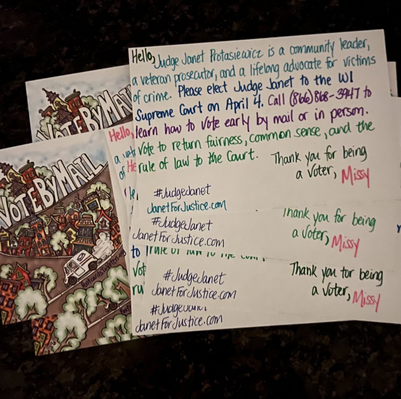 Hello, Judge Janet Protasiewicz is a community leader,
a veteran prosecutor, and a lifelong advocate for victims
of crime. Please elect Judge Janet to the WI
Supreme Court on April 4. Call (866) 868-3947 to
learn how to vote early by mail or in person.
Vote to return fairness, common sense, and the
rule of law to the Court.
Thank you for being
a voter, Missy
#JudgeJanet
JanetForJustice.com
Thank you for being
a voter, Missy
#JudgeJanet
JanetForJustice.com
Thank you for being
a voter, Missy
#JudgeJanet
JanetForJustice.com
#JudgeJanet
JanetForJustice.com
Hello,
VOTE BY MAIL
VOTE BY MAIL